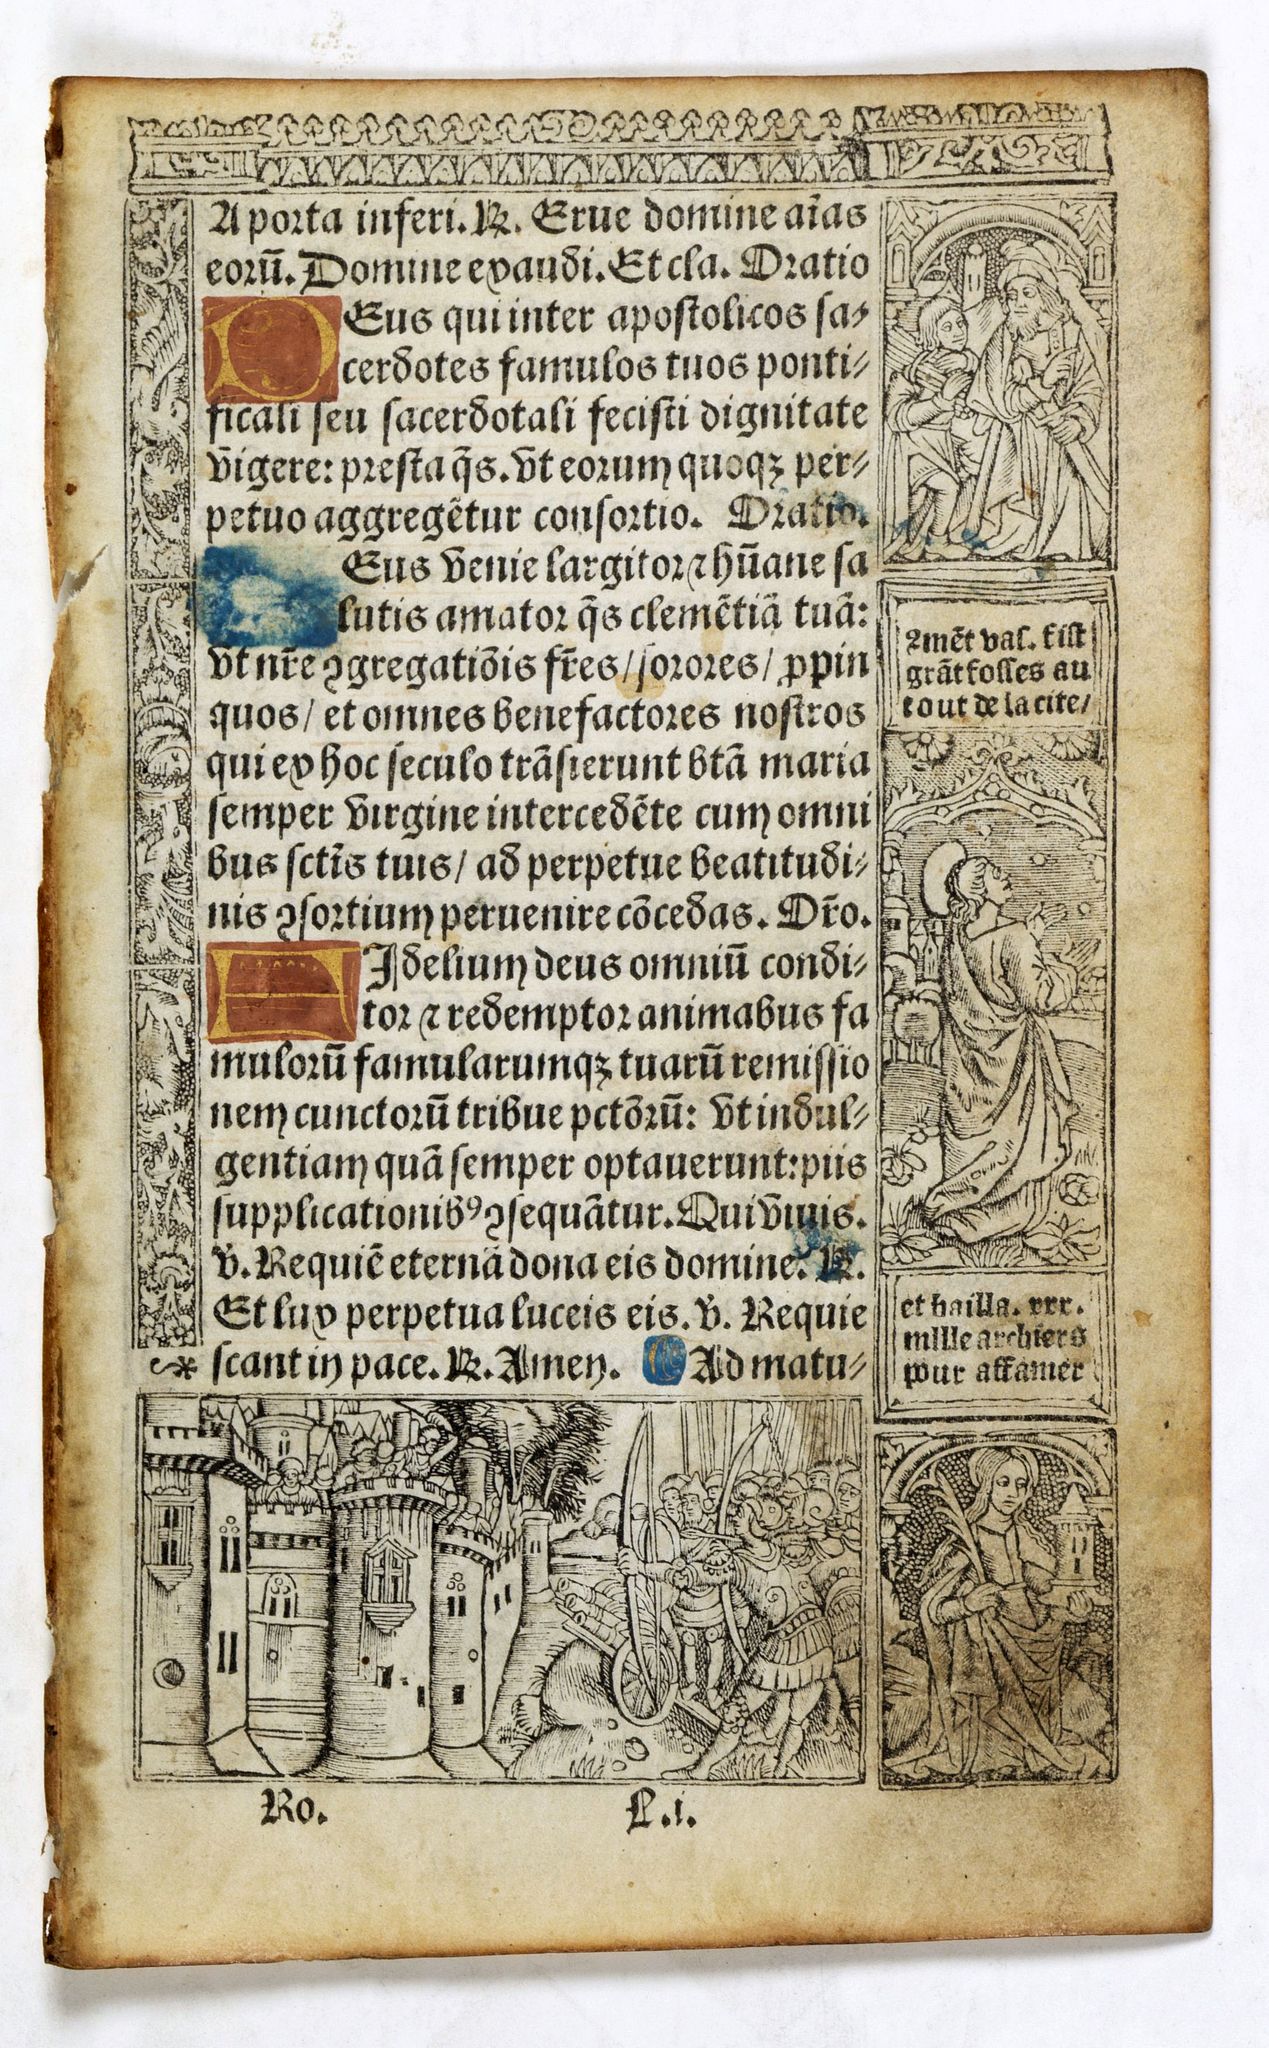 A porta inferi. ℟. Erue domine aĩas
eorũ. Domine exaudi. Et cla. Oratio
DEus qui inter apostolicos sa⸗
cerdotes famulos tuos ponti⸗
ficali seu sacerdotali fecisti dignitate
vigere: presta q̃s. vt eorum quoqꝫ per⸗
petuo aggregẽtur consortio. Oratio.
Eus venie largitor ⁊ hũane sa
lutis amator q̃s clemẽtiã tuã:
vt nr̃e ꝯgregatiõis fr̃es/ sorores/ ꝓpin
quos/ et omnes benefactores nostros
qui ex hoc seculo trãsierunt btã maria
semper virgine intercedẽte cum omni
bus sctĩs tuis/ ad perpetue beatitudi⸗
nis ꝯsortium peruenire cõcedas. Or̃o.
FIdelium deus omniũ condi⸗
tor ⁊ redemptor animabus fa
mulorũ famularumqꝫ tuarũ remissio
nem cunctorũ tribue pctõrũ: vt indul⸗
gentiam quã semper optauerunt: piis
supplicationibꝰ ꝯsequãtur. Qui viuis.
℣. Requiẽ eternã dona eis domine. ℟.
Et lux perpetua luceis eis. ℣. Requie
scant in pace. ℟. Amen. Ad matu⸗
⁊mẽt val. fist
grãt fosses au
tout de la cite/
et bailla. xxx.
mille archiers
pour affamer
Ro. L.i.